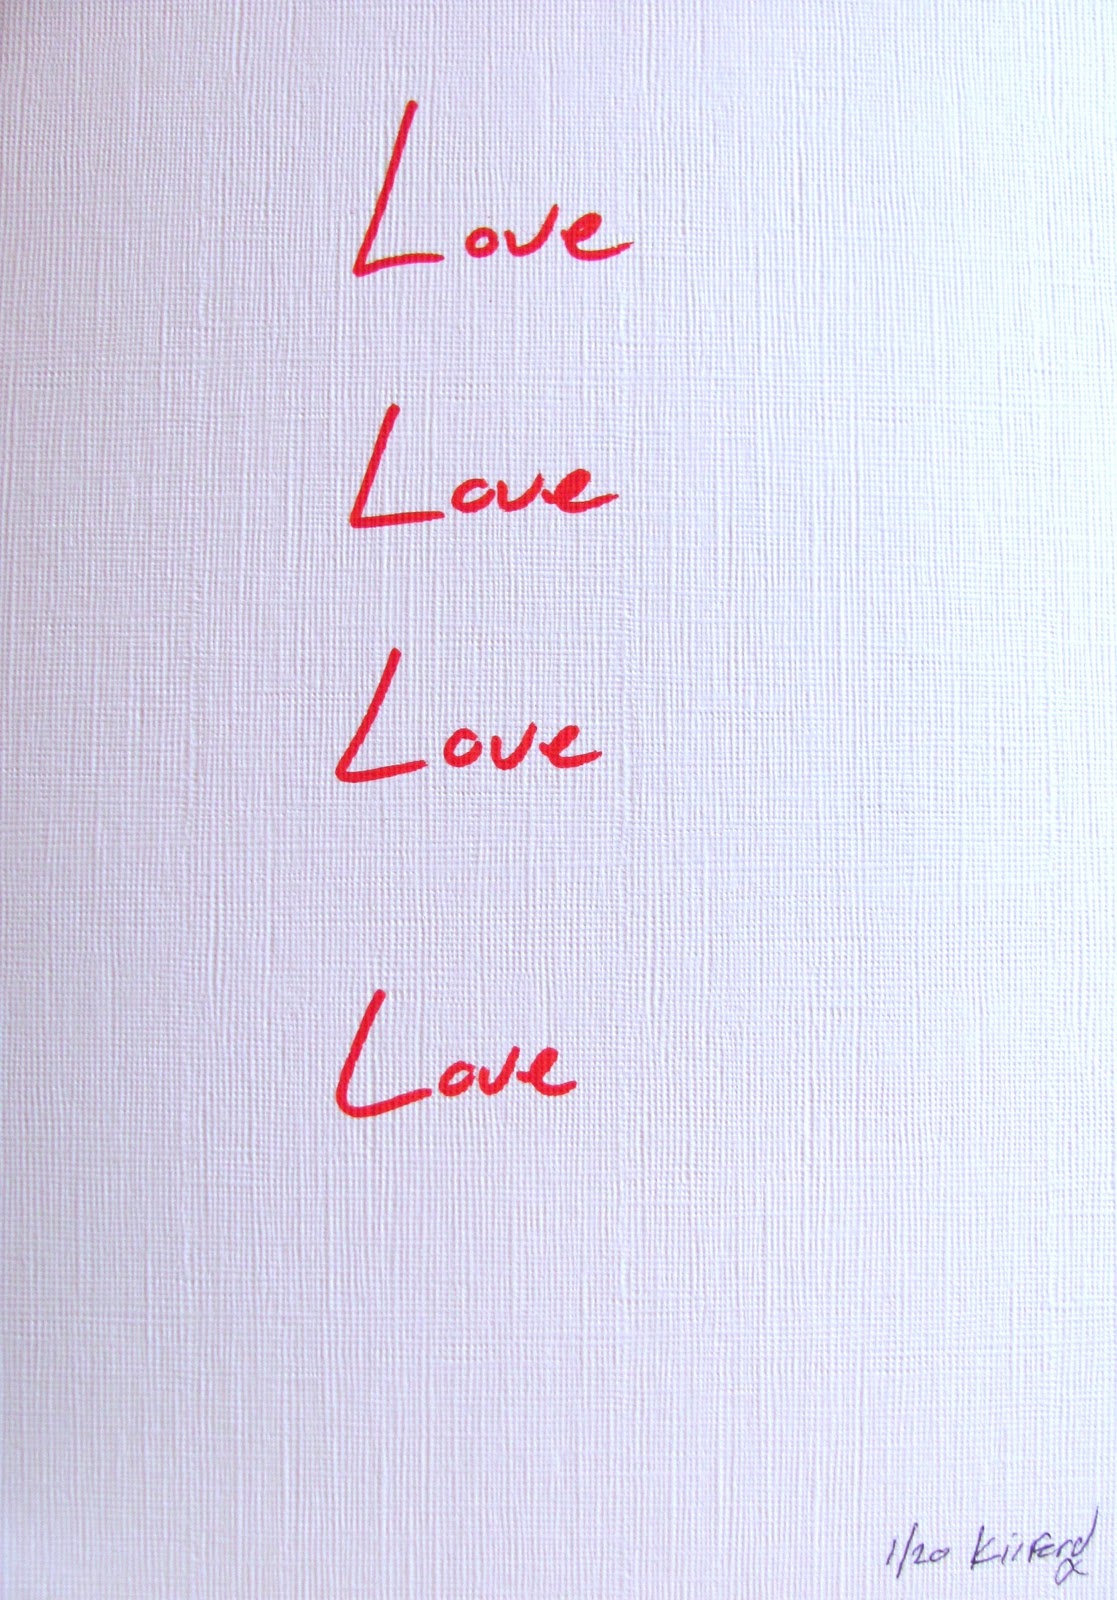 Love
Love
Love
Love
1/20